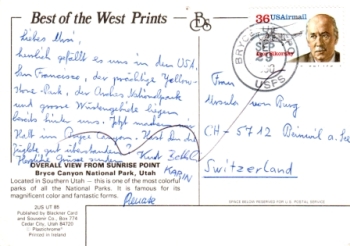 Best of the West Prints
BDS
Liebes Ursi,
herrlich gefällt es uns in den USA.
San Francisco, der prächtige Yellow-
stone-Park, der Arches Nationalpark
und grosse Wüstengebiete liegen
bereits hinter uns. Jetzt machen wir
Halt im Bryce Canyon. Hast Du die
gut überstanden?
Herzliche Grüsse senden
KARIN
Renate
36 USAirmail
Igor Sikorsky
BRYCE
SEP
29
USPS
Frau
Ursula von Burg
CH-5712 Beinwil a. See
Switzerland
OVERALL VIEW FROM SUNRISE POINT
Bryce Canyon National Park, Utah
Located in Southern Utah — this is one of the most colorful
parks of all the National Parks. It is famous for its
magnificent color and fantastic forms.
2US UT 85
Published by Backner Card
and Souvenir Co., Box 774
Cedar City, Utah 84720
"Plastichrome"
Printed in Ireland
SPACE BELOW RESERVED FOR U.S. POSTAL SERVICE